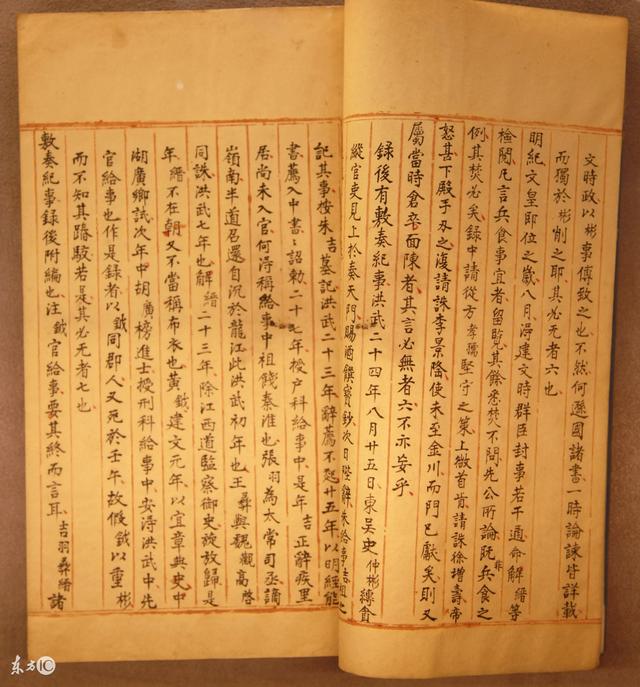 文時政以彬事傅致之也不然何遜國諸書一時論諫皆詳載
而獨於彬削之耶其必无者六也
明紀文皇即位之歲八月淂建文時群臣封事若干通命解縉等
檢閱凡言兵食事宜者留覽其餘悉焚不問先公所論既非兵食之
例其焚必矣録中請從方孝孺堅守之策上微首肯請誅徐增壽帝
怒甚下殿手刃之復請誅李景隆使未至金川而門已獻矣則又
屬當時倉卒面陳者其言必無者六不亦妄乎
録後有敷奏紀事洪武二十四年八月廿五日東吴史仲彬縳貪
縱官吏見上於奏天門賜酒饌寳鈔次日陛辭朱給事吉祖之
記其事桉朱吉墓記洪武二十三年辭薦不起廿五年以明經能
書薦入中書〻詔勅二十七年授户科給事中是年吉正辭疾里
居尚未入官何淂稱給事中祖餞秦淮也張羽為太常司丞謫
嶺南半道召還自沉於龍江此洪武初年也王彞與魏觀高啓
同誅洪武七年也解縉二十三年除江西道監察御史旋放歸是
年縉不在朝又不當稱布衣也黄鉞建文元年以宜章典史中
湖廣鄉試次年中胡廣榜進士授刑科給事中安淂洪武中先
官給事也作是録者以鉞同郡人又死於壬午故假鉞以重彬
而不知其踳駮若是其必无者七也
敷奏紀事録後附編也注鉞官給事要其終而言耳吉羽彞縉諸
东方IC